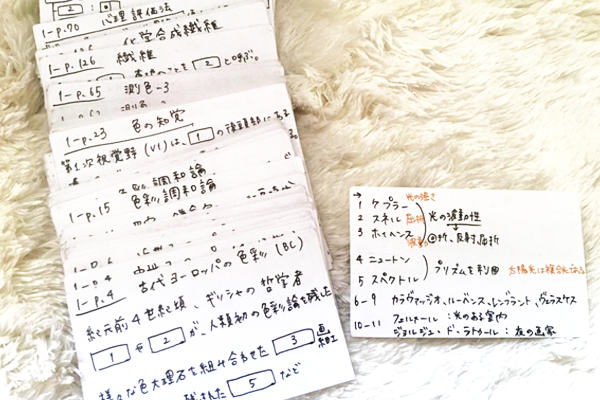 2 : ●
1-p.70 心理評価法
化学合成繊維
1-p.126 繊維
2 と呼ぶ。
1-p.65 測色-3
1-p.23 色の知覚
第1次視覚野(V1)は、 1 の後頭部にある
色彩調和論
1-p.15 色彩調和論
1-p.6
1-p.4
1-p.4 古代ヨーロッパの色彩(BC)
紀元前4世紀頃、ギリシャの哲学者
1 や 2 が、人類初の色彩論を残した
様々な色大理石を組み合わせた 3 画
残された 5 など
→ 光の強さ
1 ケプラー
2 スネル 屈折 光の波動性
3 ホイヘンス 波動 回折、反射、屈折
4 ニュートン
プリズムを利用 太陽光は複合光である
5 スペクトル
6-9 カラヴァッジオ、ルーベンス、レンブラント、ヴェラスケス
10-11 フェルメール:光のある室内
ジョルジュ・ド・ラトゥール:夜の画家